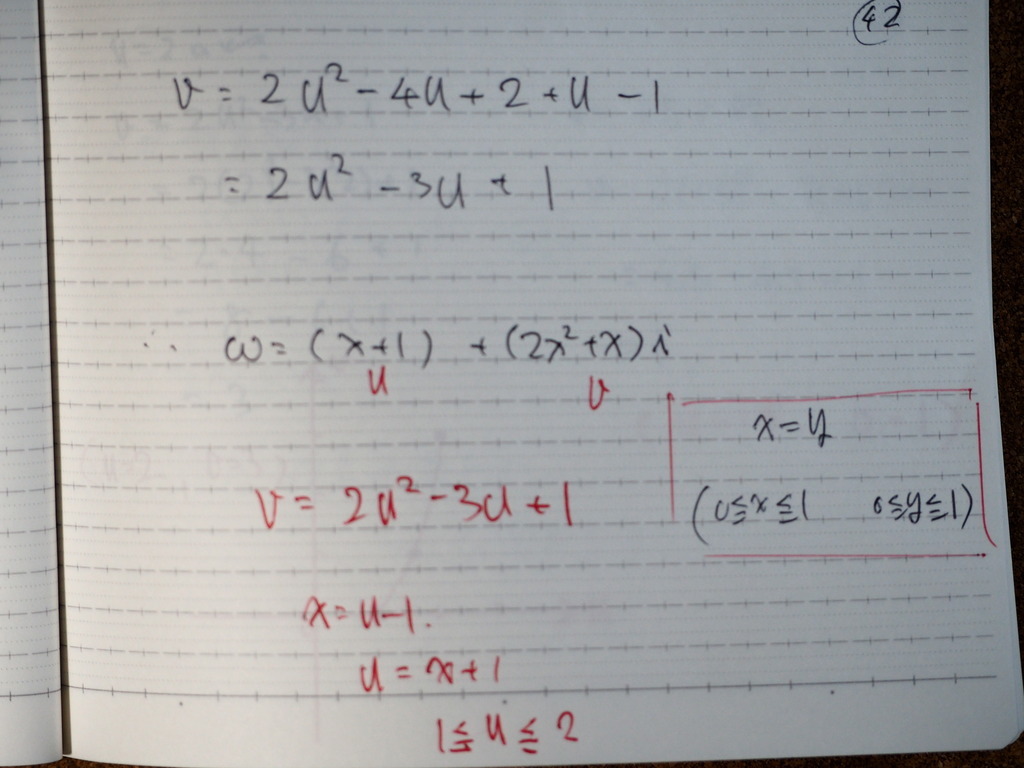 42
v = 2u² - 4u + 2 + u - 1
= 2u² - 3u + 1
∴ ω = (x+1) + (2x²+x)i
u v
x = y
v = 2u² - 3u + 1 (0≦x≦1 0≦y≦1)
x = u-1.
u = x+1
1≦u≦2